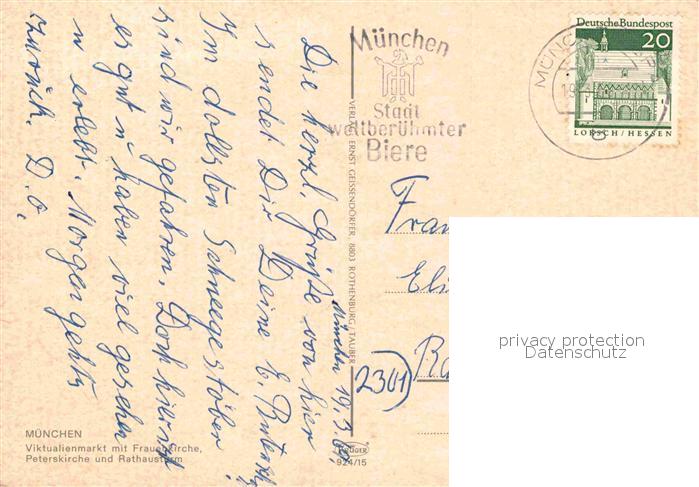 München 19.3.67
Die herzl. Grüße von hier
sendet Dir Deine E.
Im dollsten Schneegestöber
sind wir gefahren. Doch hier ist
es gut u. haben viel gesehen
u. erlebt. Morgen gehts
zurück. D. O.
München
Stadt
weltberühmter
Biere
MÜNC
19
Deutsche Bundespost
20
LORSCH/HESSEN
VERLAG ERNST GEISSENDÖRFER, 8803 ROTHENBURG/TAUBER
Frau
Eli
2301 Ra
privacy protection
Datenschutz
MÜNCHEN
Viktualienmarkt mit Frauenkirche,
Peterskirche und Rathausturm
KRÜGER
924/15